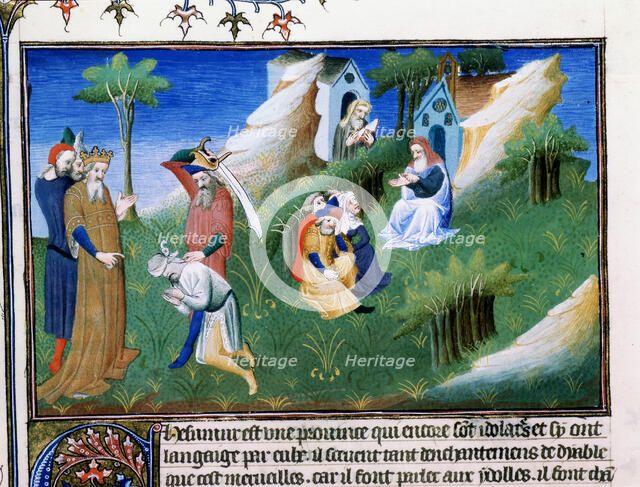 Heritage Heritage
Heritage
Heritage Heritage
Hesimur est vne prouince qui encore sōt ydolatrēs et sy ont
langaige par eulx. il sceuent tant denchantemens de dyable
que cest merueilles. car il font parler aux ydolles. il font chā